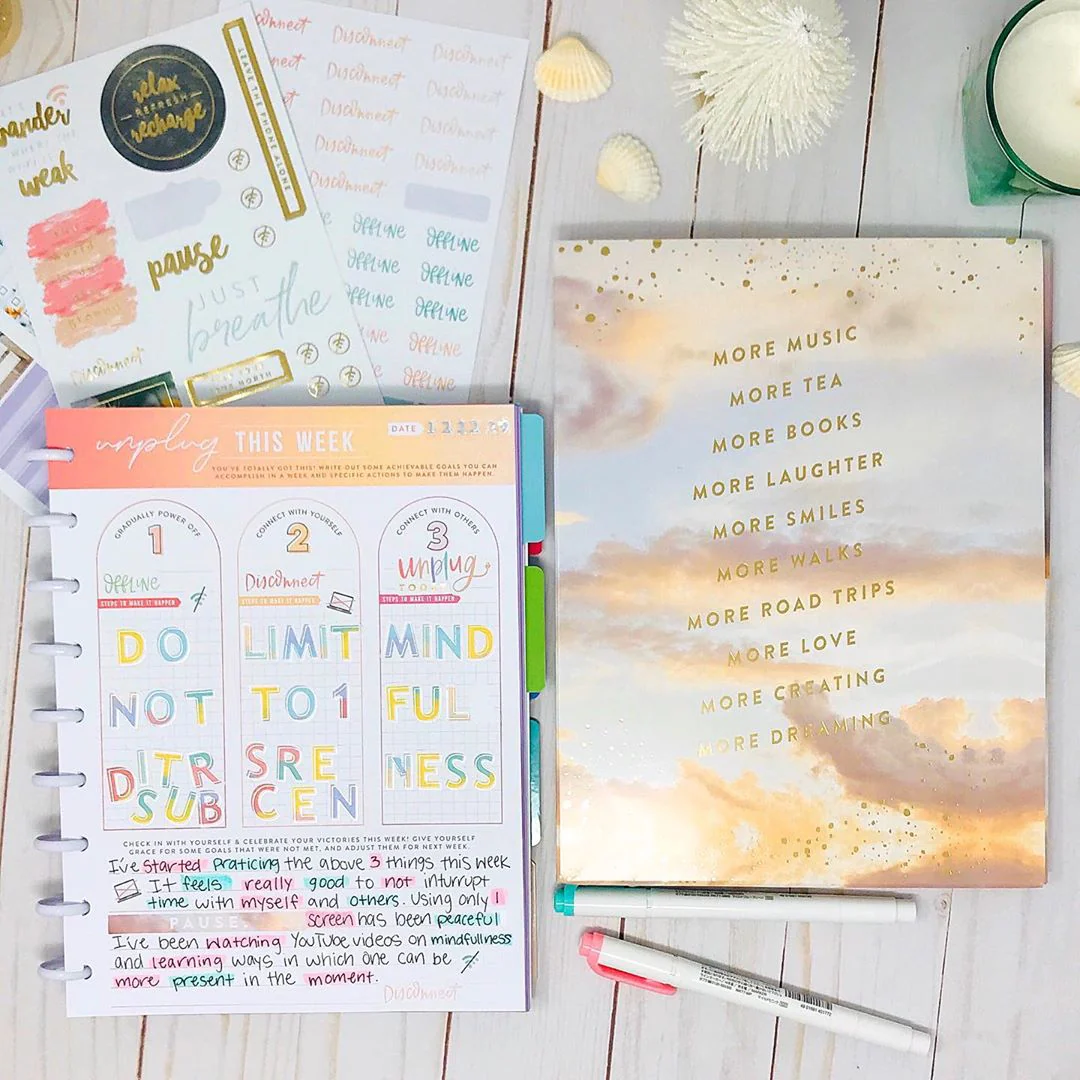 Disconnect
Disconnect
Disconnect
Disconnect
Disconnect
Disconnect
Disconnect
Disconnect
Disconnect
OFFLINE
OFFLINE
OFFLINE
OFFLINE
OFFLINE
OFFLINE
OFFLINE
OFFLINE
OFFLINE
OFFLINE
LEAVE THE PHONE ALONE
relax
REFRESH
recharge
wander
weak
pause
JUST
breathe
Disconnect
unplug THIS WEEK
DATE
YOU'VE TOTALLY GOT THIS! WRITE OUT SOME ACHIEVABLE GOALS YOU CAN
ACCOMPLISH IN A WEEK AND SPECIFIC ACTIONS TO MAKE THEM HAPPEN.
GRADUALLY POWER OFF
1
OFFLINE
STEPS TO MAKE IT HAPPEN
DO
NOT
DITR
SUB
CONNECT WITH YOURSELF
2
Disconnect
STEPS TO MAKE IT HAPPEN
LIMIT
TO 1
SRE
CEN
CONNECT WITH OTHERS
3
unplug
TOO
STEPS TO MAKE IT HAPPEN
MIND
FUL
NESS
CHECK IN WITH YOURSELF & CELEBRATE YOUR VICTORIES THIS WEEK! GIVE YOURSELF
GRACE FOR SOME GOALS THAT WERE NOT MET, AND ADJUST THEM FOR NEXT WEEK.
I've started praticing the above 3 things this week
It feels really good to not inturrupt
time with myself and others. Using only 1
PAUSE. screen has been peaceful
I've been watching YouTube videos on mindfullness
and learning ways in which one can be
more present in the moment.
Disconnect
MORE MUSIC
MORE TEA
MORE BOOKS
MORE LAUGHTER
MORE SMILES
MORE WALKS
MORE ROAD TRIPS
MORE LOVE
MORE CREATING
MORE DREAMING